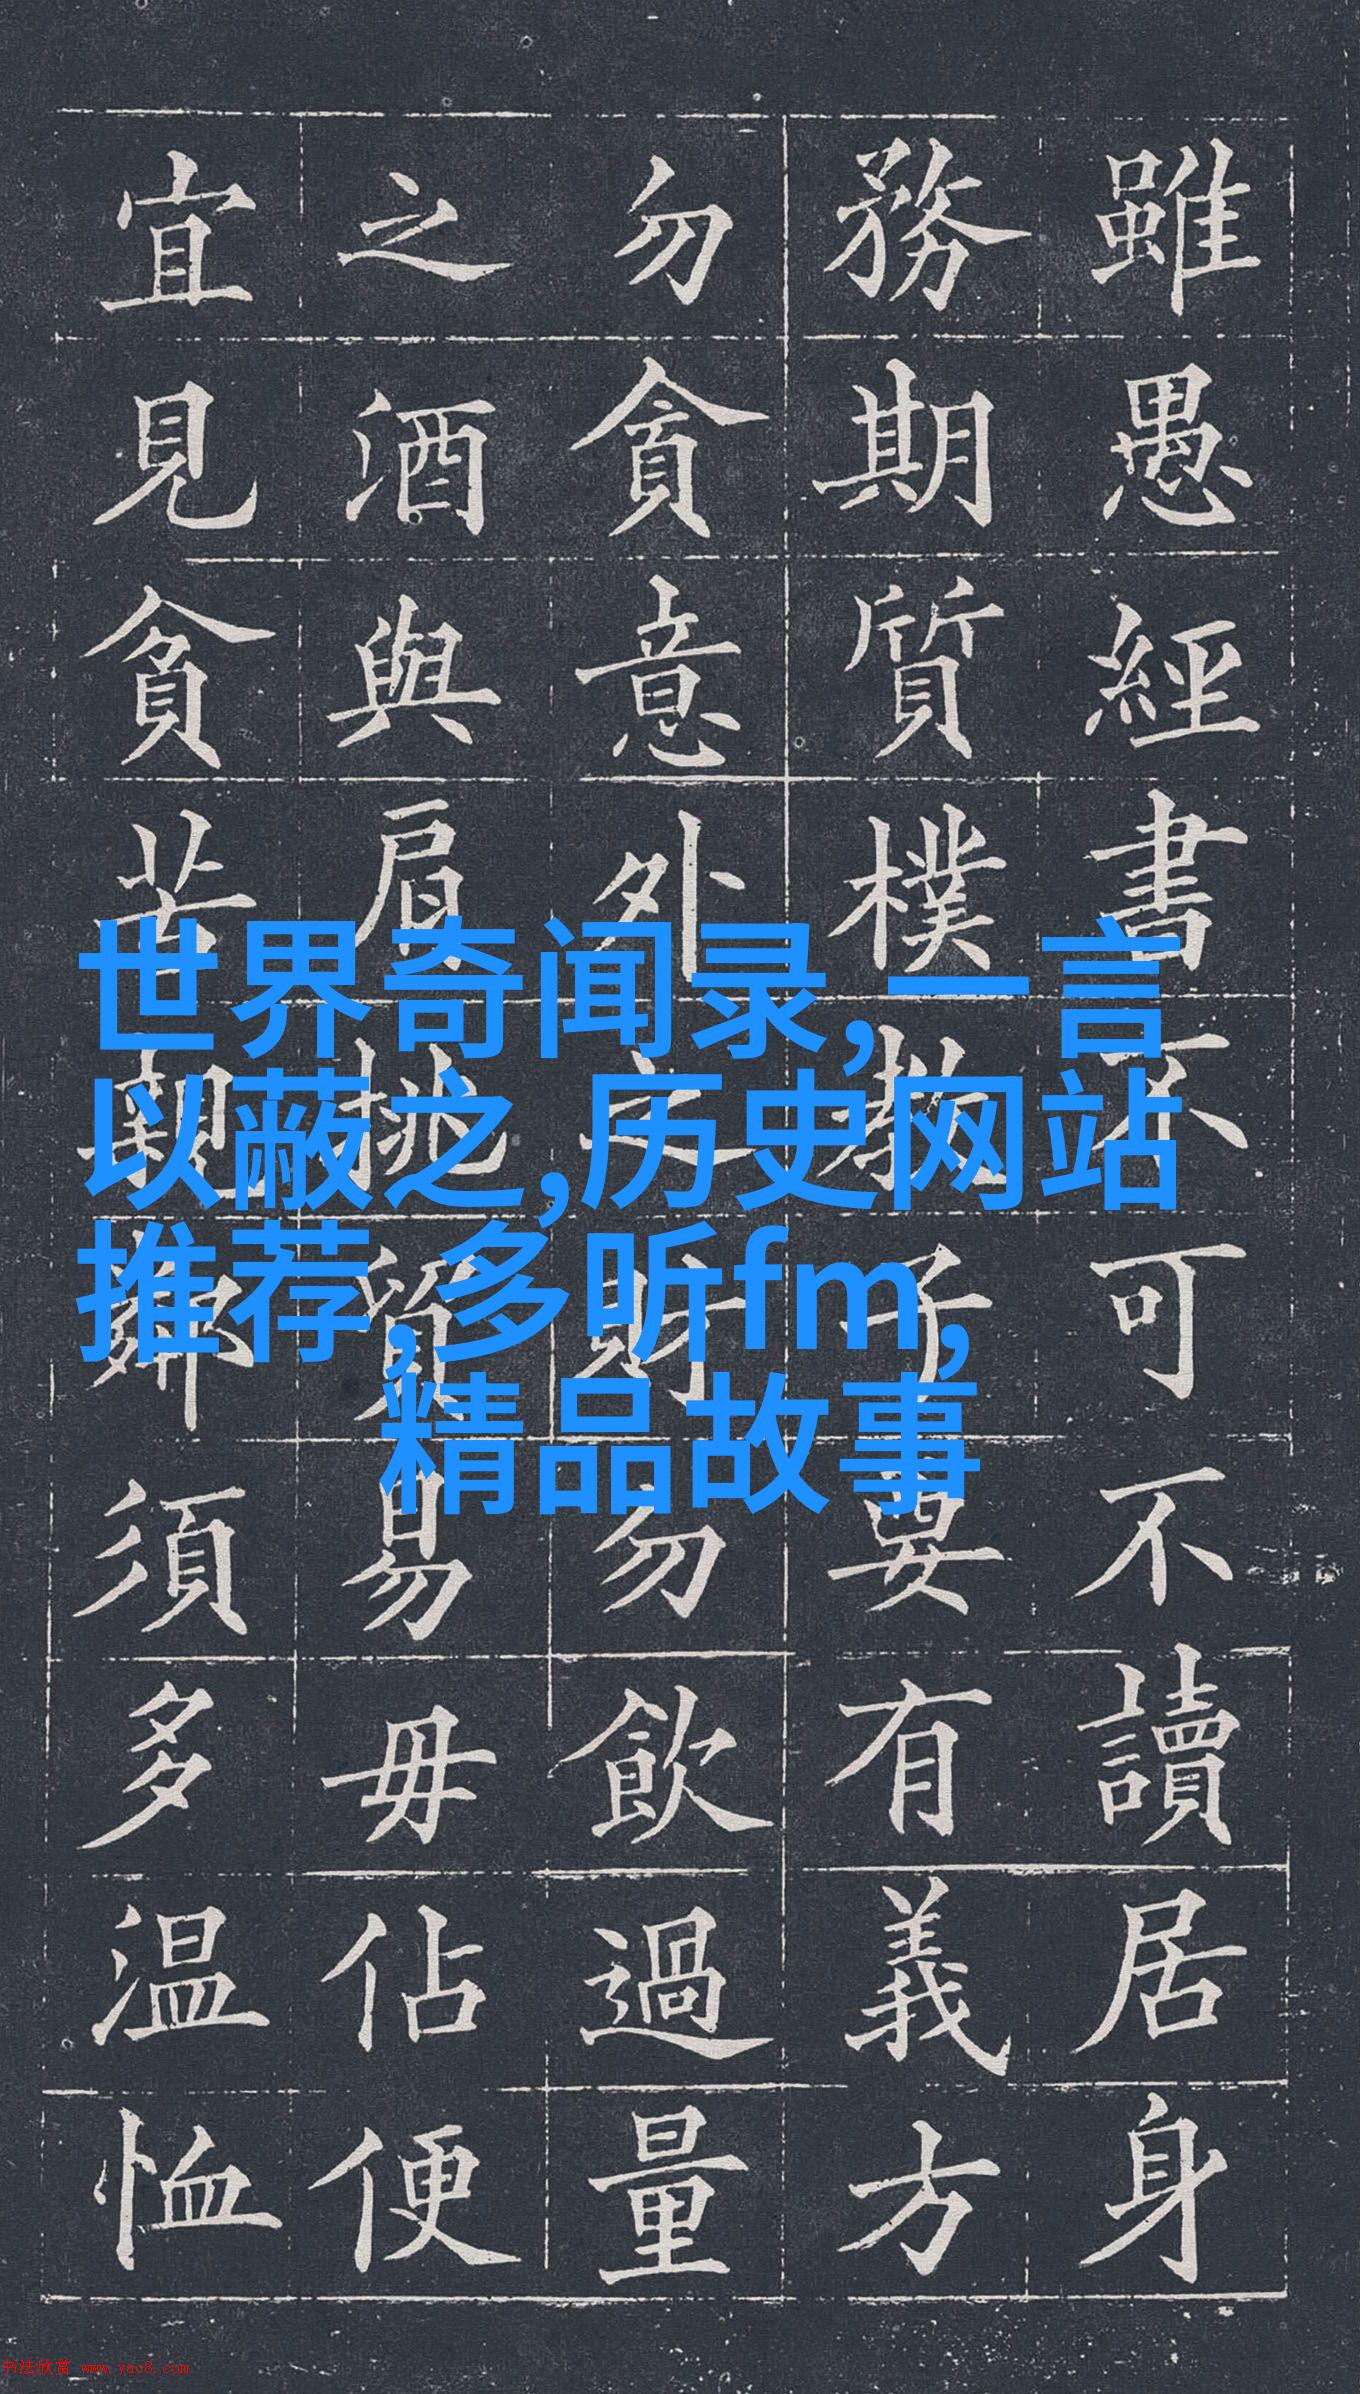 雖愚經書不可不讀居身
務期質樸教子要有義方
勿貪意外之財勿飲過量
之酒與肩挑貿易毋佔便
宜見貧苦親鄰須多温恤
世界奇闻录,一言
以蔽之,历史网站
推荐,多听fm,
精品故事
书法欣赏 www.yac8.com